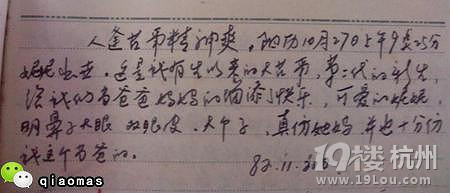 人逢喜事精神爽,阳历10月27日上午9点25分
妮妮出世。这是我有生以来的大喜事,第二代的诞生,
给我们当爸爸妈妈的增添了快乐,可爱的妮妮,
明鼻子大眼 双眼皮、大个子,真仿她妈 并也十分仿
我这个当爸的。
82.11.
qiaomas
19楼 杭州
www.19lou.com